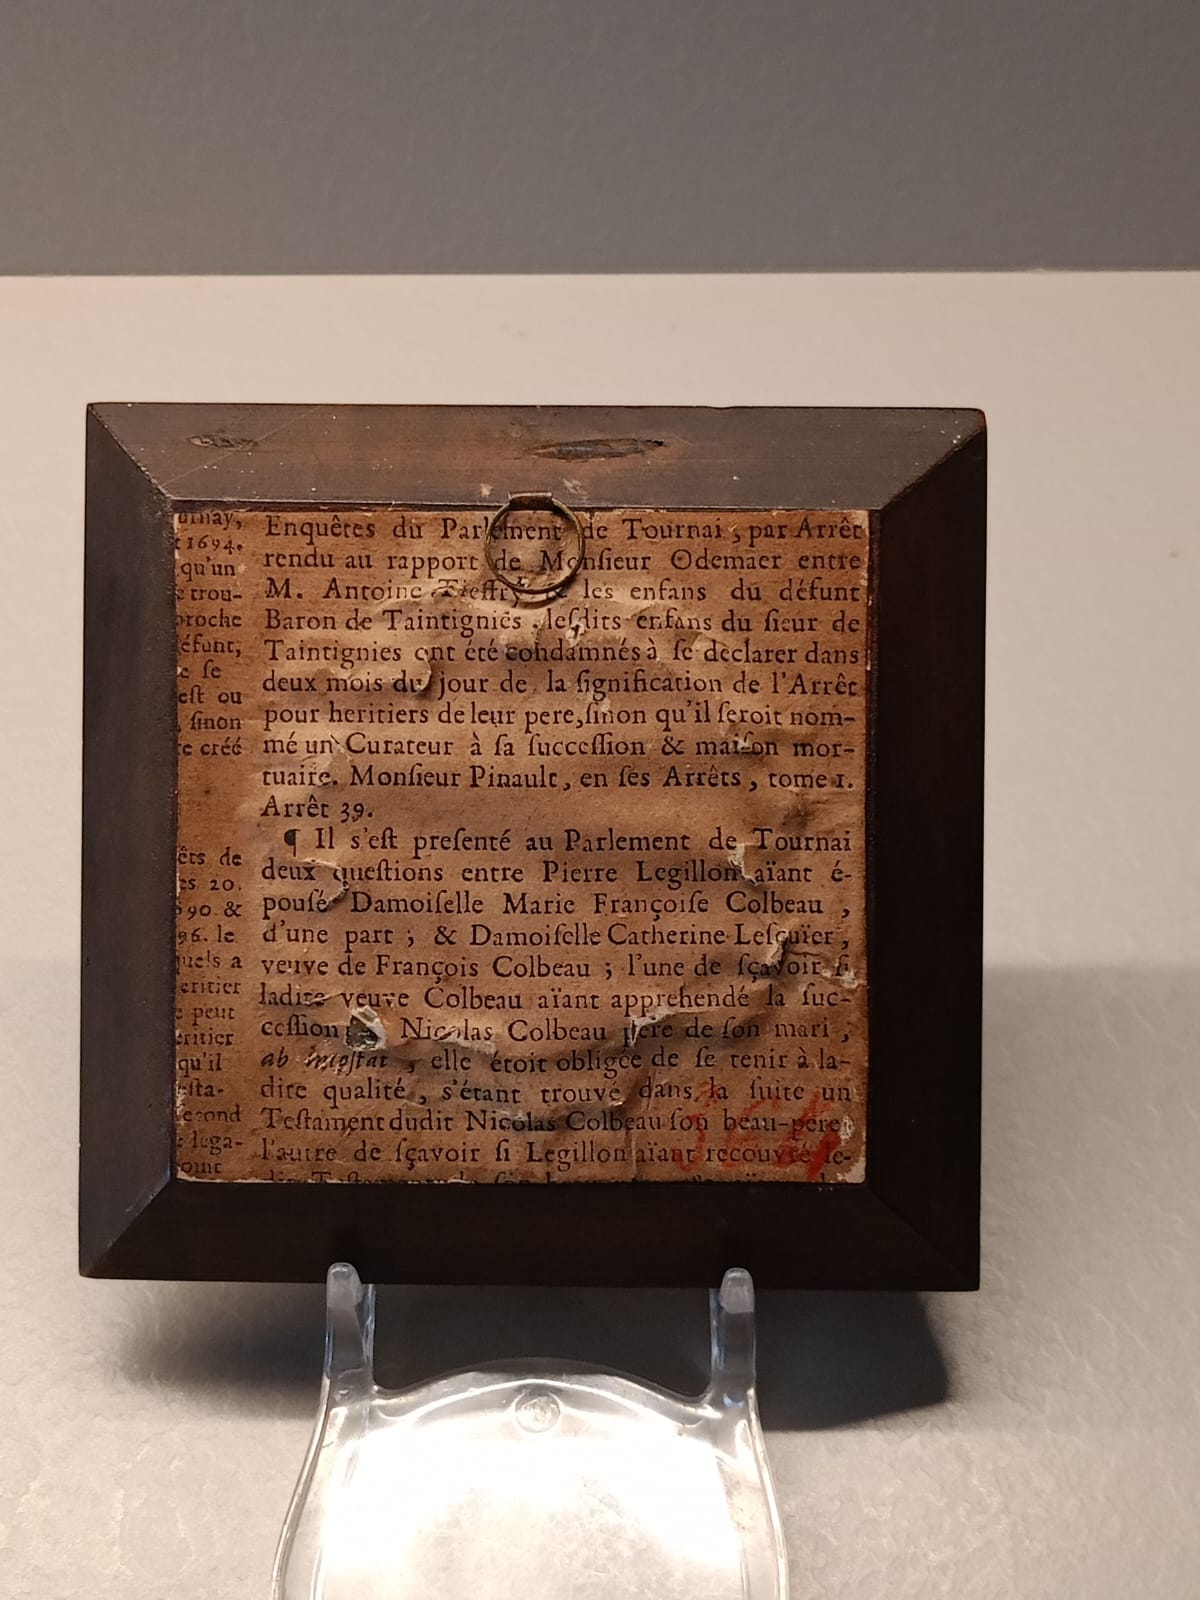 urnay,
1694.
qu'un
trou-
proche
éfunt,
se
est ou
sinon
créé
êts de
es 20.
90. &
96. le
uels a
eritier
peut
eritier
qu'il
esta-
econd
léga-
oint
Enquêtes du Parlement de Tournai, par Arrêt
rendu au rapport de Monſieur Odemaer entre
M. Antoine & les enfans du défunt
Baron de Taintignies, leſdits enfans du ſieur de
Taintignies ont été condamnés à ſe declarer dans
deux mois du jour de la ſignification de l'Arrêt
pour heritiers de leur pere, ſinon qu'il ſeroit nom-
mé un Curateur à ſa ſucceſſion & maiſon mor-
tuaire. Monſieur Pinault, en ſes Arrêts, tome 1.
Arrêt 39.
¶ Il s'eſt preſenté au Parlement de Tournai
deux queſtions entre Pierre Legillon aïant é-
pouſé Damoiſelle Marie Françoiſe Colbeau,
d'une part; & Damoiſelle Catherine Leſcuïer,
veuve de François Colbeau; l'une de ſçavoir ſi
ladite veuve Colbeau aïant apprehendé la ſuc-
ceſſion Nicolas Colbeau pere de ſon mari,
ab inteſtat, elle étoit obligée de ſe tenir à la-
dite qualité, s'étant trouvé dans la ſuite un
Teſtament dudit Nicolas Colbeau ſon beau-pere,
l'autre de ſçavoir ſi Legillon aïant recouvré le-
364